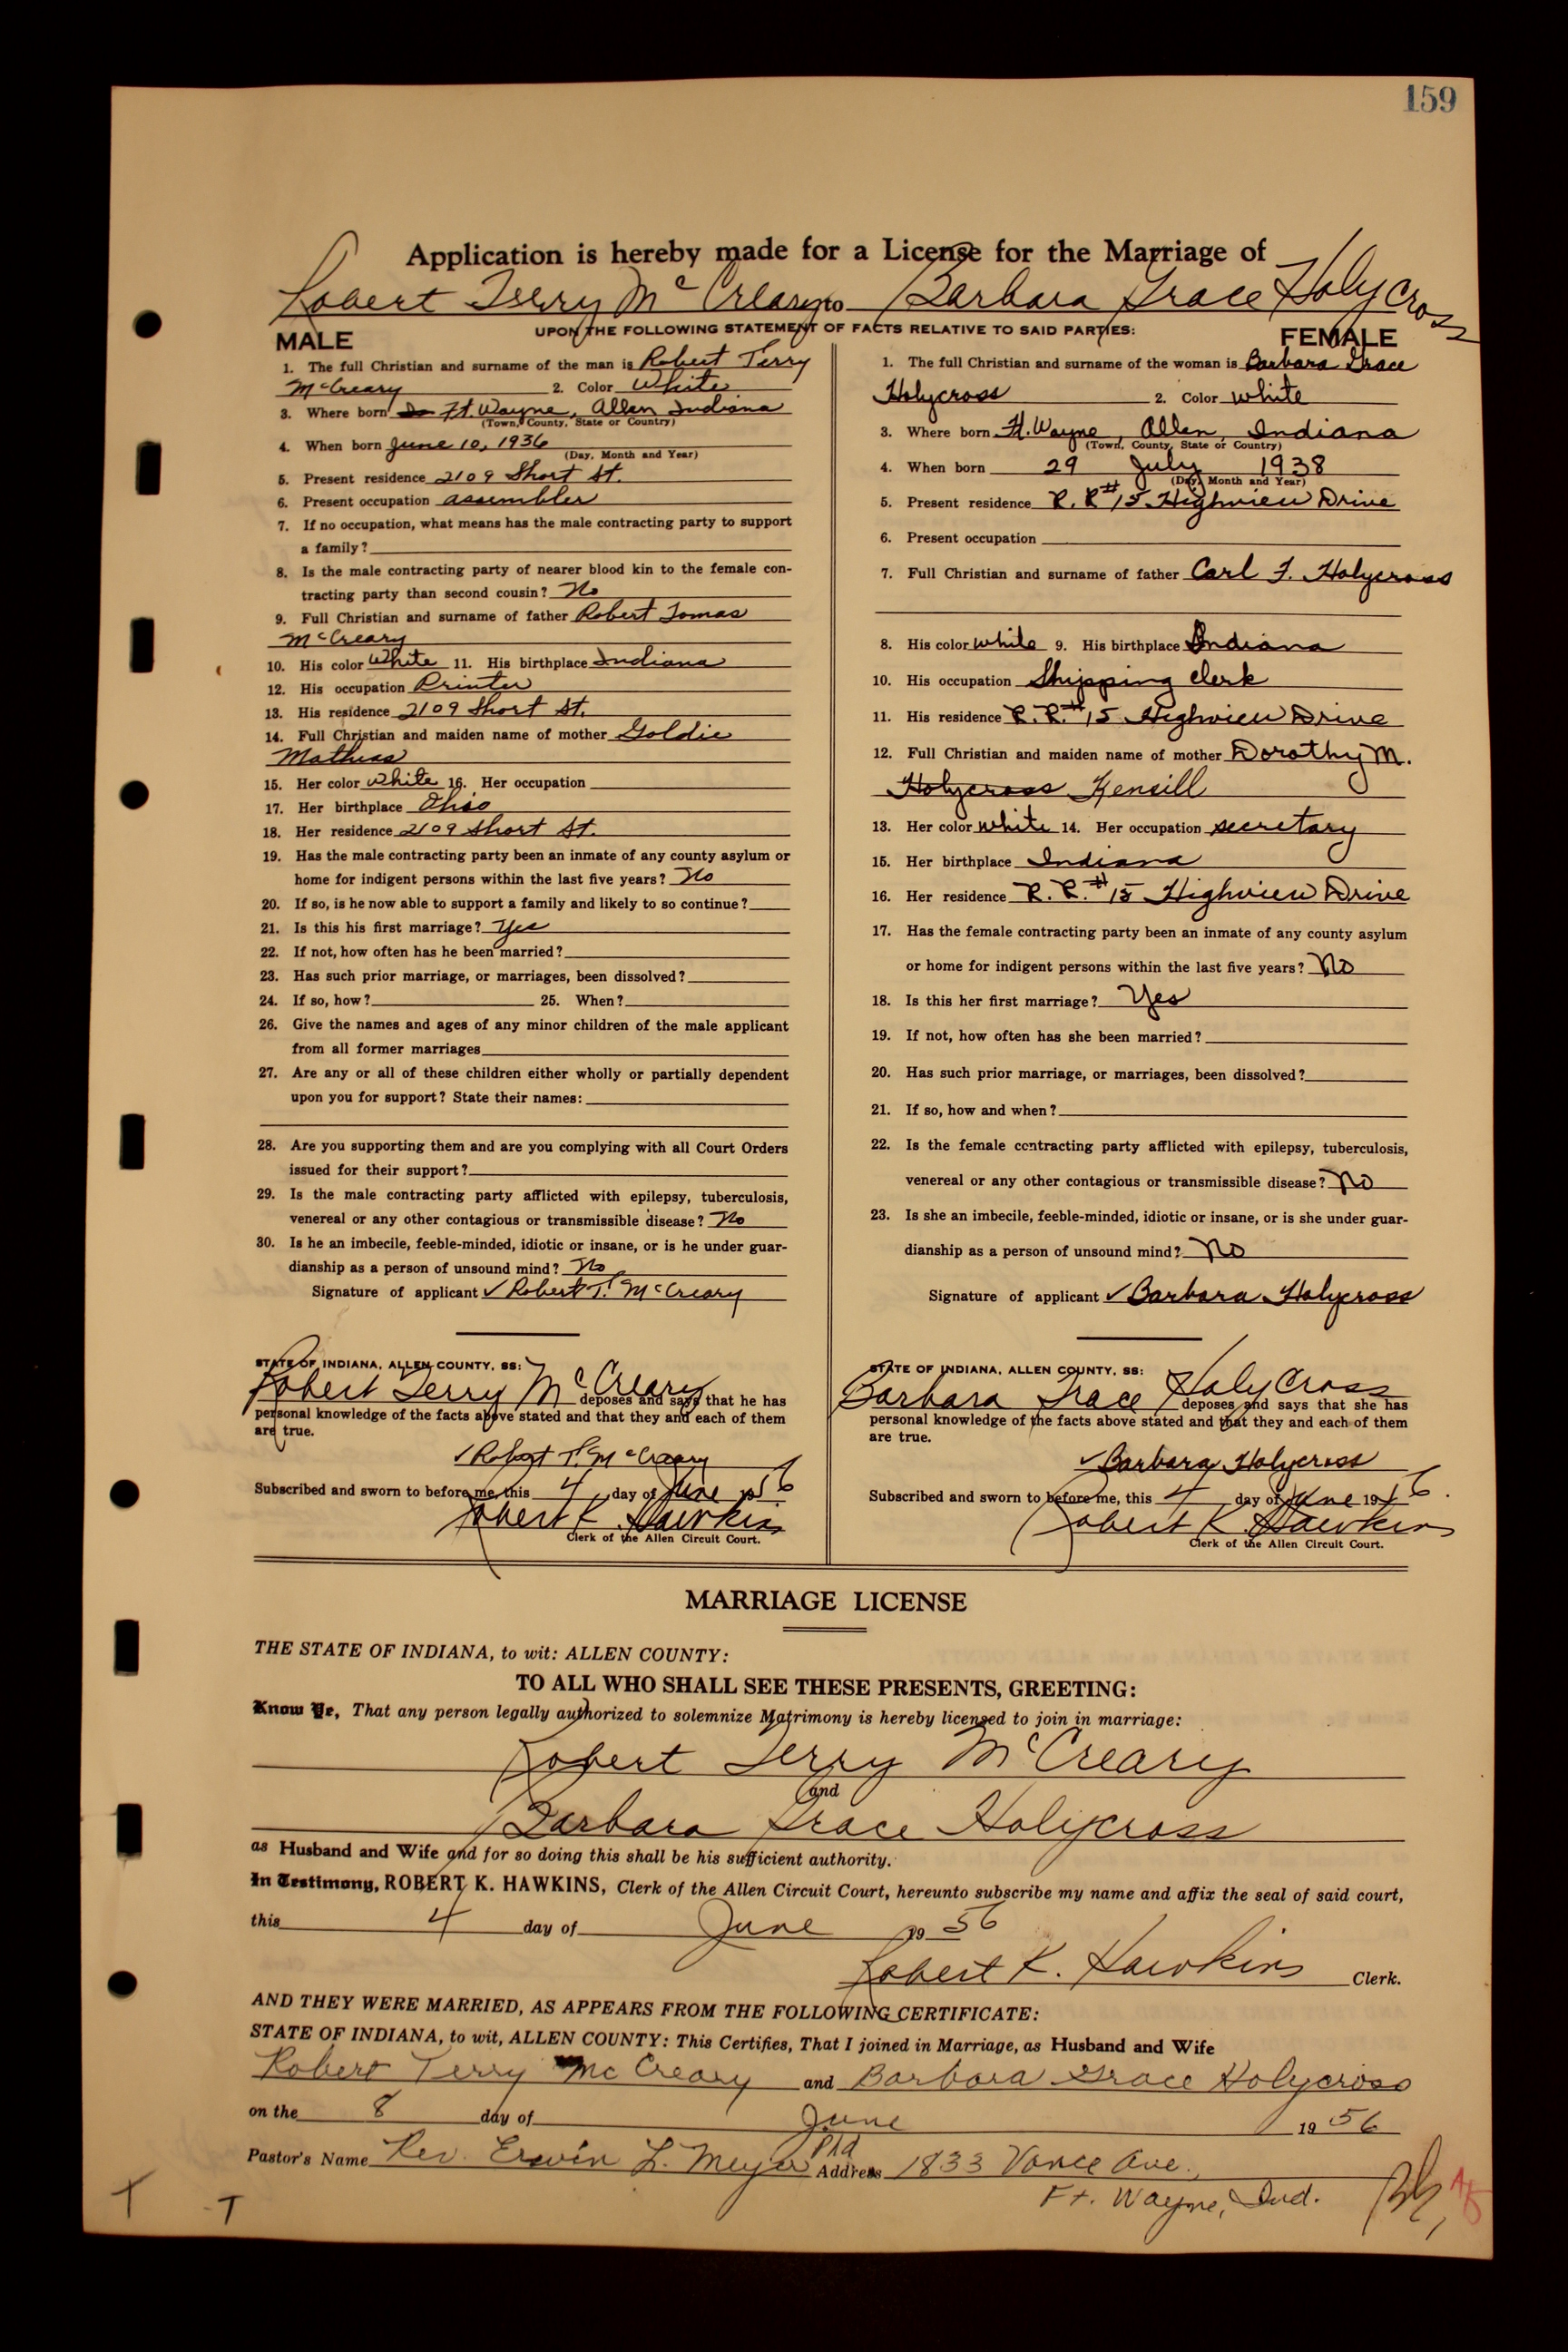 159
Application is hereby made for a License for the Marriage of
Robert Terry McCreary to Barbara Grace Holycross
UPON THE FOLLOWING STATEMENT OF FACTS RELATIVE TO SAID PARTIES:
MALE
1. The full Christian and surname of the man is Robert Terry
McCreary 2. Color White
3. Where born Ft. Wayne, Allen Indiana
(Town, County, State or Country)
4. When born June 10, 1936
(Day, Month and Year)
5. Present residence 2109 Short St.
6. Present occupation assembler
7. If no occupation, what means has the male contracting party to support
a family?
8. Is the male contracting party of nearer blood kin to the female con-
tracting party than second cousin? No
9. Full Christian and surname of father Robert Tomas
McCreary
10. His color White 11. His birthplace Indiana
12. His occupation Printer
13. His residence 2109 Short St.
14. Full Christian and maiden name of mother Goldie
Mathias
15. Her color White 16. Her occupation
17. Her birthplace Ohio
18. Her residence 2109 Short St.
19. Has the male contracting party been an inmate of any county asylum or
home for indigent persons within the last five years? No
20. If so, is he now able to support a family and likely to so continue?
21. Is this his first marriage? Yes
22. If not, how often has he been married?
23. Has such prior marriage, or marriages, been dissolved?
24. If so, how? 25. When?
26. Give the names and ages of any minor children of the male applicant
from all former marriages
27. Are any or all of these children either wholly or partially dependent
upon you for support? State their names:
28. Are you supporting them and are you complying with all Court Orders
issued for their support?
29. Is the male contracting party afflicted with epilepsy, tuberculosis,
venereal or any other contagious or transmissible disease? No
30. Is he an imbecile, feeble-minded, idiotic or insane, or is he under guar-
dianship as a person of unsound mind? No
Signature of applicant ✓ Robert T. McCreary
STATE OF INDIANA, ALLEN COUNTY, SS:
Robert Terry McCreary deposes and says that he has
personal knowledge of the facts above stated and that they and each of them
are true.
✓ Robert T. McCreary
Subscribed and sworn to before me, this 4 day of June 1956
Robert K. Hawkins
Clerk of the Allen Circuit Court.
FEMALE
1. The full Christian and surname of the woman is Barbara Grace
Holycross 2. Color white
3. Where born Ft. Wayne, Allen, Indiana
(Town, County, State or Country)
4. When born 29 July 1938
(Day, Month and Year)
5. Present residence R. R. #15 Highview Drive
6. Present occupation
7. Full Christian and surname of father Carl F. Holycross
8. His color white 9. His birthplace Indiana
10. His occupation Shipping clerk
11. His residence R. R. #15 Highview Drive
12. Full Christian and maiden name of mother Dorothy M.
Holycross Kensill
13. Her color white 14. Her occupation secretary
15. Her birthplace Indiana
16. Her residence R. R. #15 Highview Drive
17. Has the female contracting party been an inmate of any county asylum
or home for indigent persons within the last five years? No
18. Is this her first marriage? Yes
19. If not, how often has she been married?
20. Has such prior marriage, or marriages, been dissolved?
21. If so, how and when?
22. Is the female contracting party afflicted with epilepsy, tuberculosis,
venereal or any other contagious or transmissible disease? No
23. Is she an imbecile, feeble-minded, idiotic or insane, or is she under guar-
dianship as a person of unsound mind? No
Signature of applicant ✓ Barbara Holycross
STATE OF INDIANA, ALLEN COUNTY, SS:
Barbara Grace Holycross deposes and says that she has
personal knowledge of the facts above stated and that they and each of them
are true.
✓ Barbara Holycross
Subscribed and sworn to before me, this 4 day of June 1956.
Robert K. Hawkins
Clerk of the Allen Circuit Court.
MARRIAGE LICENSE
THE STATE OF INDIANA, to wit: ALLEN COUNTY:
TO ALL WHO SHALL SEE THESE PRESENTS, GREETING:
Know Ye, That any person legally authorized to solemnize Matrimony is hereby licensed to join in marriage:
Robert Terry McCreary
and
Barbara Grace Holycross
as Husband and Wife and for so doing this shall be his sufficient authority.
In Testimony, ROBERT K. HAWKINS, Clerk of the Allen Circuit Court, hereunto subscribe my name and affix the seal of said court,
this 4 day of June 1956
Robert K. Hawkins Clerk.
AND THEY WERE MARRIED, AS APPEARS FROM THE FOLLOWING CERTIFICATE:
STATE OF INDIANA, to wit, ALLEN COUNTY: This Certifies, That I joined in Marriage, as Husband and Wife
Robert Terry McCreary and Barbara Grace Holycross
on the 8 day of June 1956
Pastor's Name Rev. Erwin L. Meyer PhD Address 1833 Vance Ave.,
Ft. Wayne, Ind.
T T